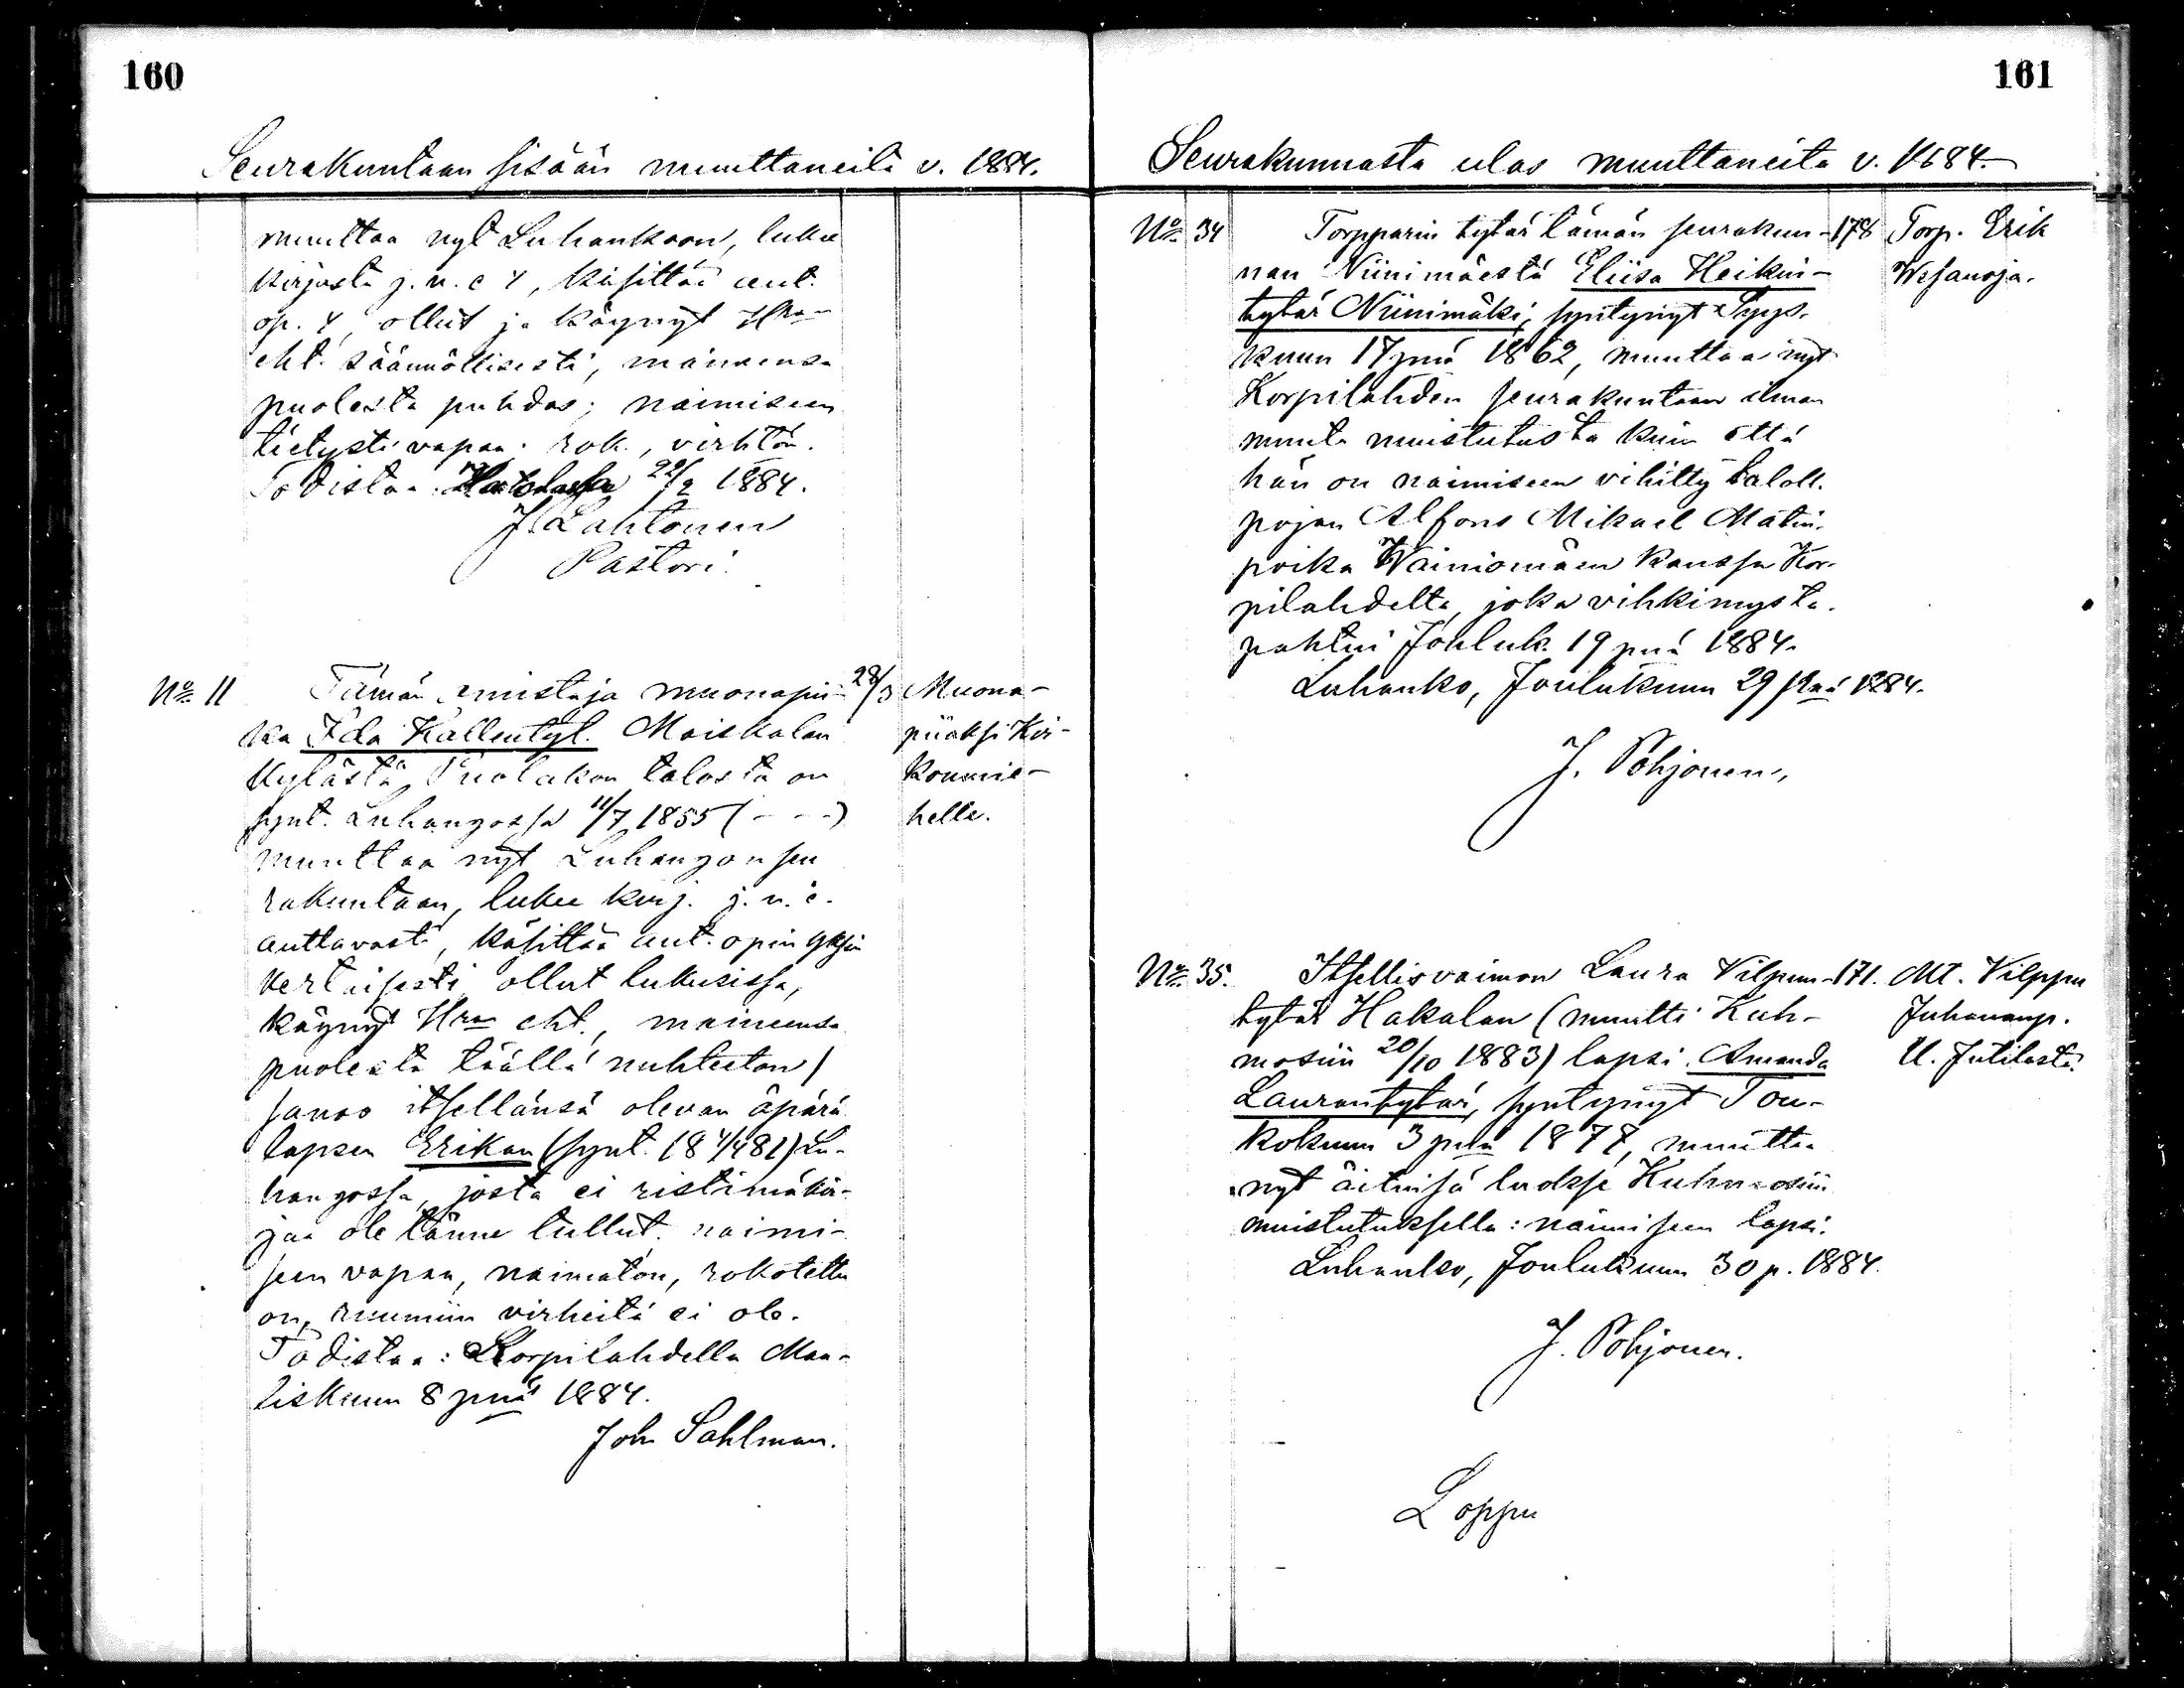 160
Seurakuntaan sisään muuttaneita v. 1884.
muuttaa nyt Luhankoon, lukee
kirjasta j. n. e 4, käsittää aut.
op. 4, ollut ja käynyt Hran
eht. säännöllisesti, maineensa
puolesta puhdas; naimiseen
tietysti vapaa. rok., virhtön.
Todistaa 29/2 1884.
J. Lahtonen
Pastori.
No 11
Tämän omistaja muonapii-
ka Ida Kallentyt. Moiskalan
kylästä, Puolakan talosta on
synt. Luhangossa 11/7 1855 (- - -)
muuttaa nyt Luhangon seu
rakuntaan, lukee kirj. j. n. e.
auttavasti, käsittää aut. opin yksin
kertaisesti ollut lukusissa,
käynyt Hran eht., maineensa
puolesta täällä nuhteeton /
sanoo itsellänsä olevan äpärä
lapsen Erikan (synt. 18 4/4 81) Lu-
hangossa, josta ei ristimäkir-
jaa ole tänne tullut. naimi-
seen vapaa, naimatön, rokotettu
on, ruumiin virheitä ei ole.
Todistaa: Korpilahdella Maa-
liskuun 8 pnä 1884.
Joh. Sahlman.
28/3
Muona-
piiaksi Kir-
konmie-
helle.
161
Seurakunnasta ulos muuttaneita v. 1884.
No 34
Torpparin tytär tämän seurakun-
nan Niinimäestä Eliisa Heikin-
tytär Niinimäki, syntynyt Syys-
kuun 17 pnä 1862, muuttaa nyt
Korpilahden seurakuntaan ilman
muuta muistutusta kuin että
hän on naimiseen vihitty taloll.
pojan Alfons Mikael Matin-
poika Wainiomäen kanssa Kor-
pilahdelta, joka vihkimys ta-
pahtui Jouluk. 19 pnä 1884.
Luhanko, Joulukuun 29 pnä 1884.
J. Pohjonen.
178
Torp. Erik
Wesanoja.
No 35.
Itsellisvaimon Laura Vilpun-
tytär Hakalan (muutti Kuh-
mosiin 20/10 1883) lapsi Amanda
Laurantytär, syntynyt Tou-
kokuun 3 pnä 1878, muuttaa
nyt äitinsä luokse Kuhmosiin
muistutuksella: naimiseen lapsi.
Luhanko, Joulukuun 30 p. 1884.
J. Pohjonen.
171.
Mt. Vilppu
Juhananp.
U. Jutilasta.
Loppu